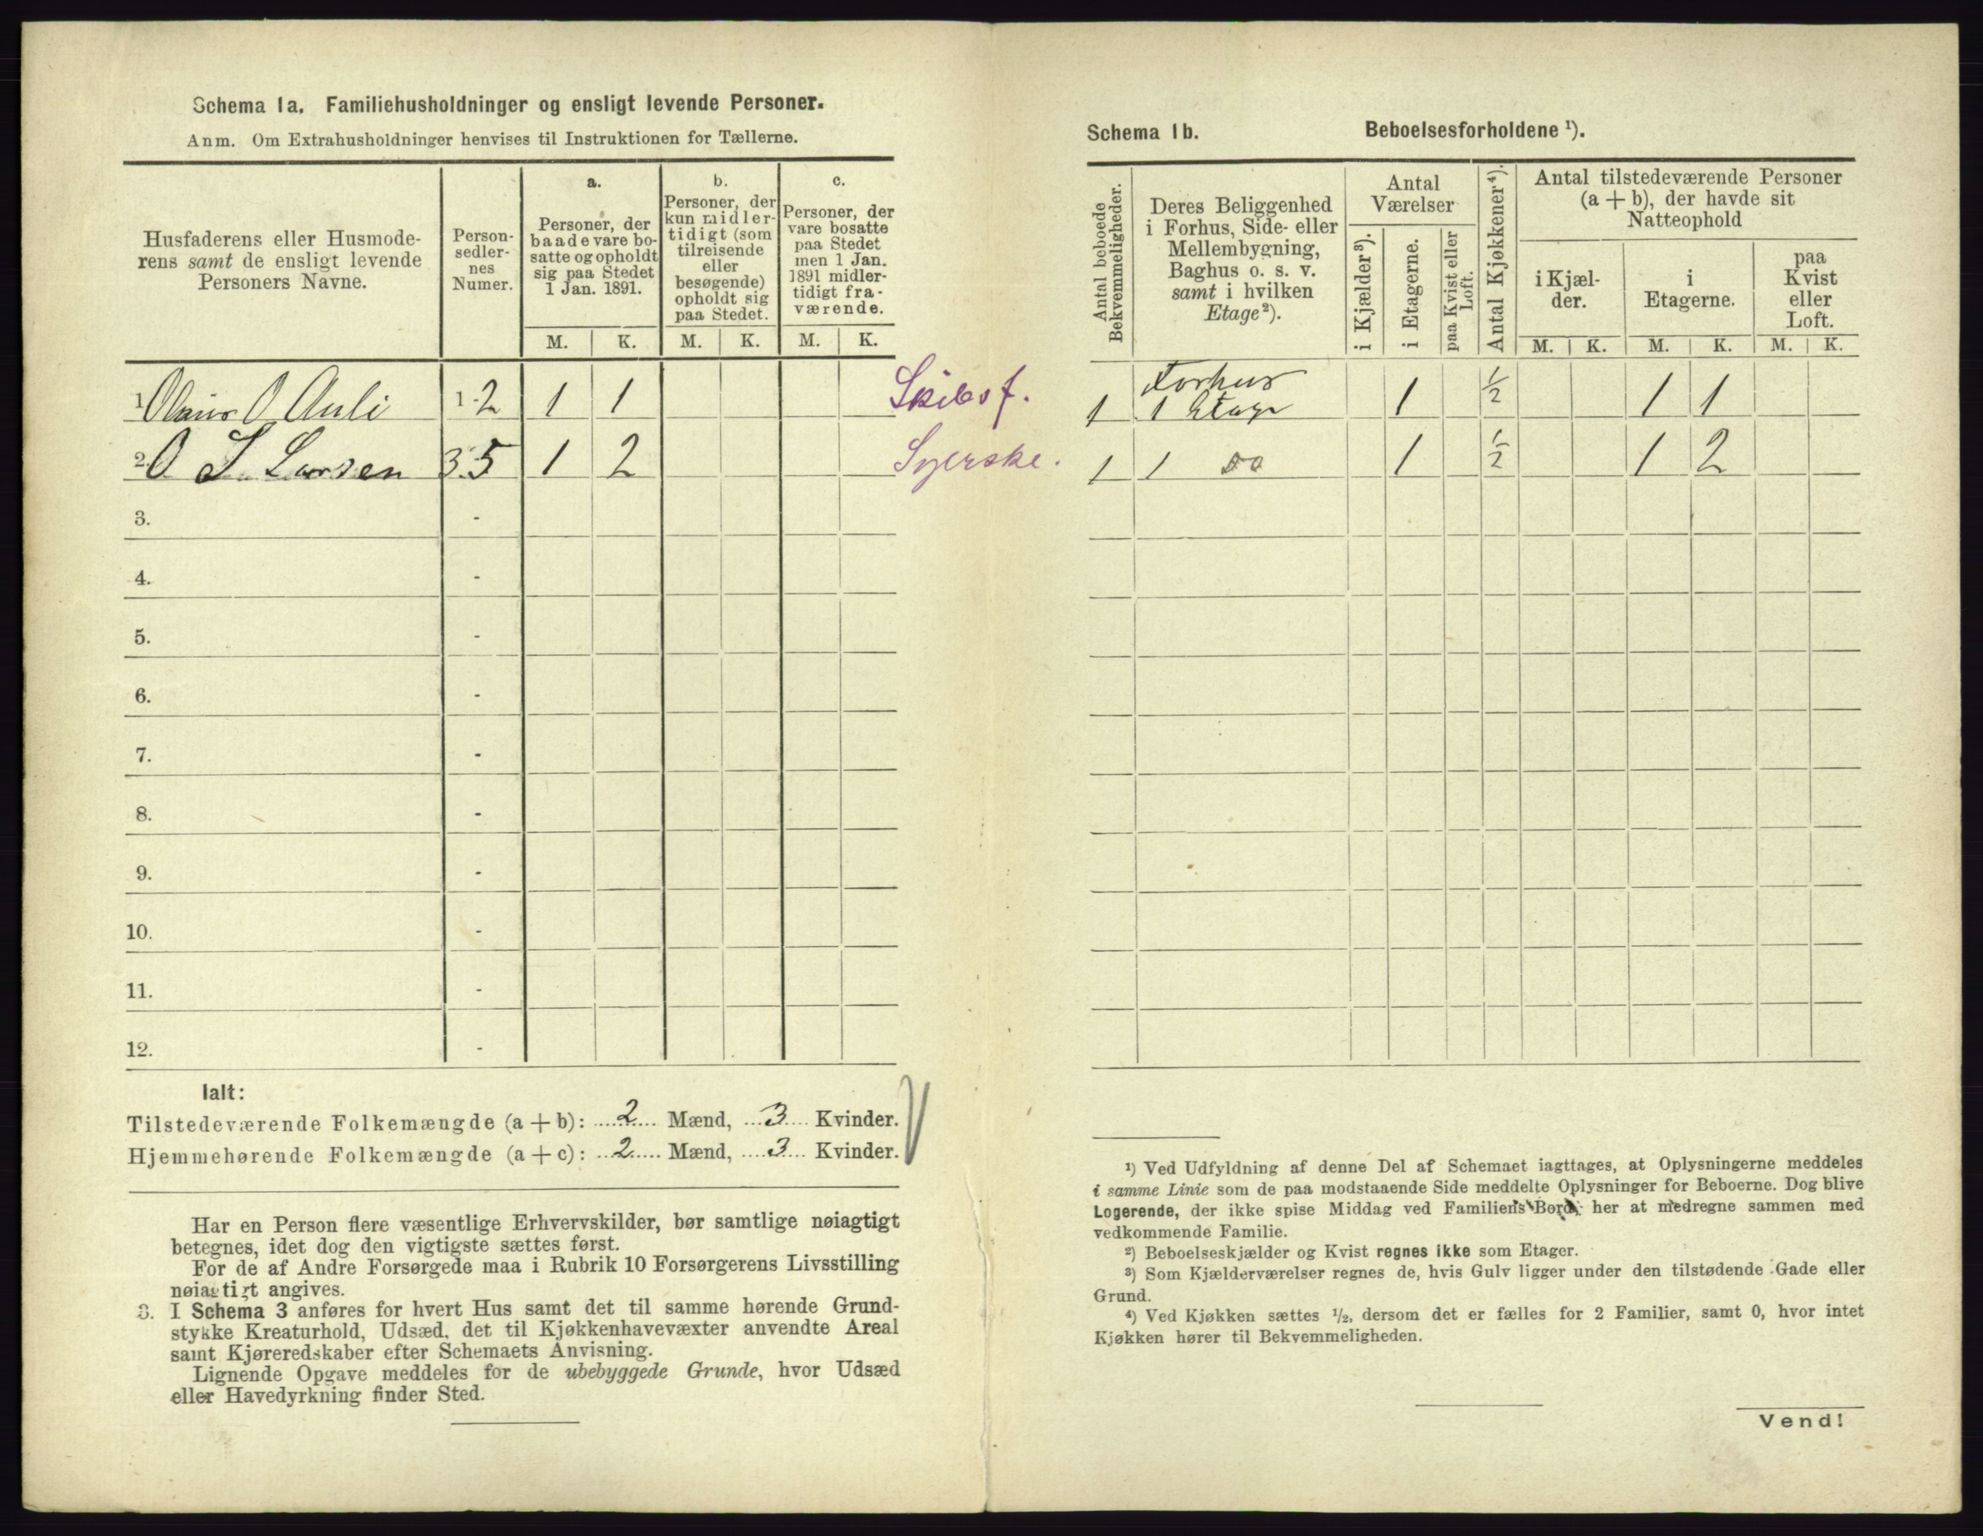 Schema 1a. Familiehusholdninger og ensligt levende Personer.
Anm. Om Extrahusholdninger henvises til Instruktionen for Tællerne.
Husfaderens eller Husmode-
rens samt de ensligt levende
Personers Navne.
Person-
sedler-
nes
Numer.
a.
Personer, der
baade vare bo-
satte og opholdt
sig paa Stedet
1 Jan. 1891.
b.
Personer, der
kun midler-
tidigt (som
tilreisende
eller
besøgende)
opholdt sig
paa Stedet.
c.
Personer, der
vare bosatte
paa Stedet
men 1 Jan.
1891 midler-
tidigt fra-
værende.
M. K. M. K. M. K.
1 Olaus O Auli 1-2 1 1 Skibsf.
2 O S Larsen 3-5 1 2 Syerske.
3. -
4. -
5. -
6. -
7. -
8. -
9. -
10. -
11. -
12. -
Ialt:
Tilstedeværende Folkemængde (a + b): 2 Mænd, 3 Kvinder.
Hjemmehørende Folkemængde (a + c): 2 Mænd, 3 Kvinder.
Har en Person flere væsentlige Erhvervskilder, bør samtlige nøiagtigt
betegnes, idet dog den vigtigste sættes først.
For de af Andre Forsørgede maa i Rubrik 10 Forsørgerens Livsstilling
nøiagtigt angives.
3. I Schema 3 anføres for hvert Hus samt det til samme hørende Grund-
stykke Kreaturhold, Udsæd, det til Kjøkkenhavevæxter anvendte Areal
samt Kjøreredskaber efter Schemaets Anvisning.
Lignende Opgave meddeles for de ubebyggede Grunde, hvor Udsæd
eller Havedyrkning finder Sted.
Schema 1b. Beboelsesforholdene ¹).
Antal beboede
Bekvemmeligheder.
Deres Beliggenhed
i Forhus, Side- eller
Mellembygning,
Baghus o. s. v.
samt i hvilken
Etage²).
Antal
Værelser
i Kjælder³).
i Etagerne.
paa Kvist eller
Loft.
Antal Kjøkkener⁴).
Antal tilstedeværende Personer
(a + b), der havde sit
Natteophold
i Kjæl-
der.
i
Etagerne.
paa
Kvist
eller
Loft.
M. K. M. K. M. K.
1 Forhus
1 Etage 1 1/2 1 1
1 1 do 1 1/2 1 2
¹) Ved Udfyldning af denne Del af Schemaet iagttages, at Oplysningerne meddeles
i samme Linie som de paa modstaaende Side meddelte Oplysninger for Beboerne. Dog blive
Logerende, der ikke spise Middag ved Familiens Bord, her at medregne sammen med
vedkommende Familie.
²) Beboelseskjælder og Kvist regnes ikke som Etager.
³) Som Kjælderværelser regnes de, hvis Gulv ligger under den tilstødende Gade eller
Grund.
⁴) Ved Kjøkken sættes ¹/₂, dersom det er fælles for 2 Familier, samt 0, hvor intet
Kjøkken hører til Bekvemmeligheden.
Vend!